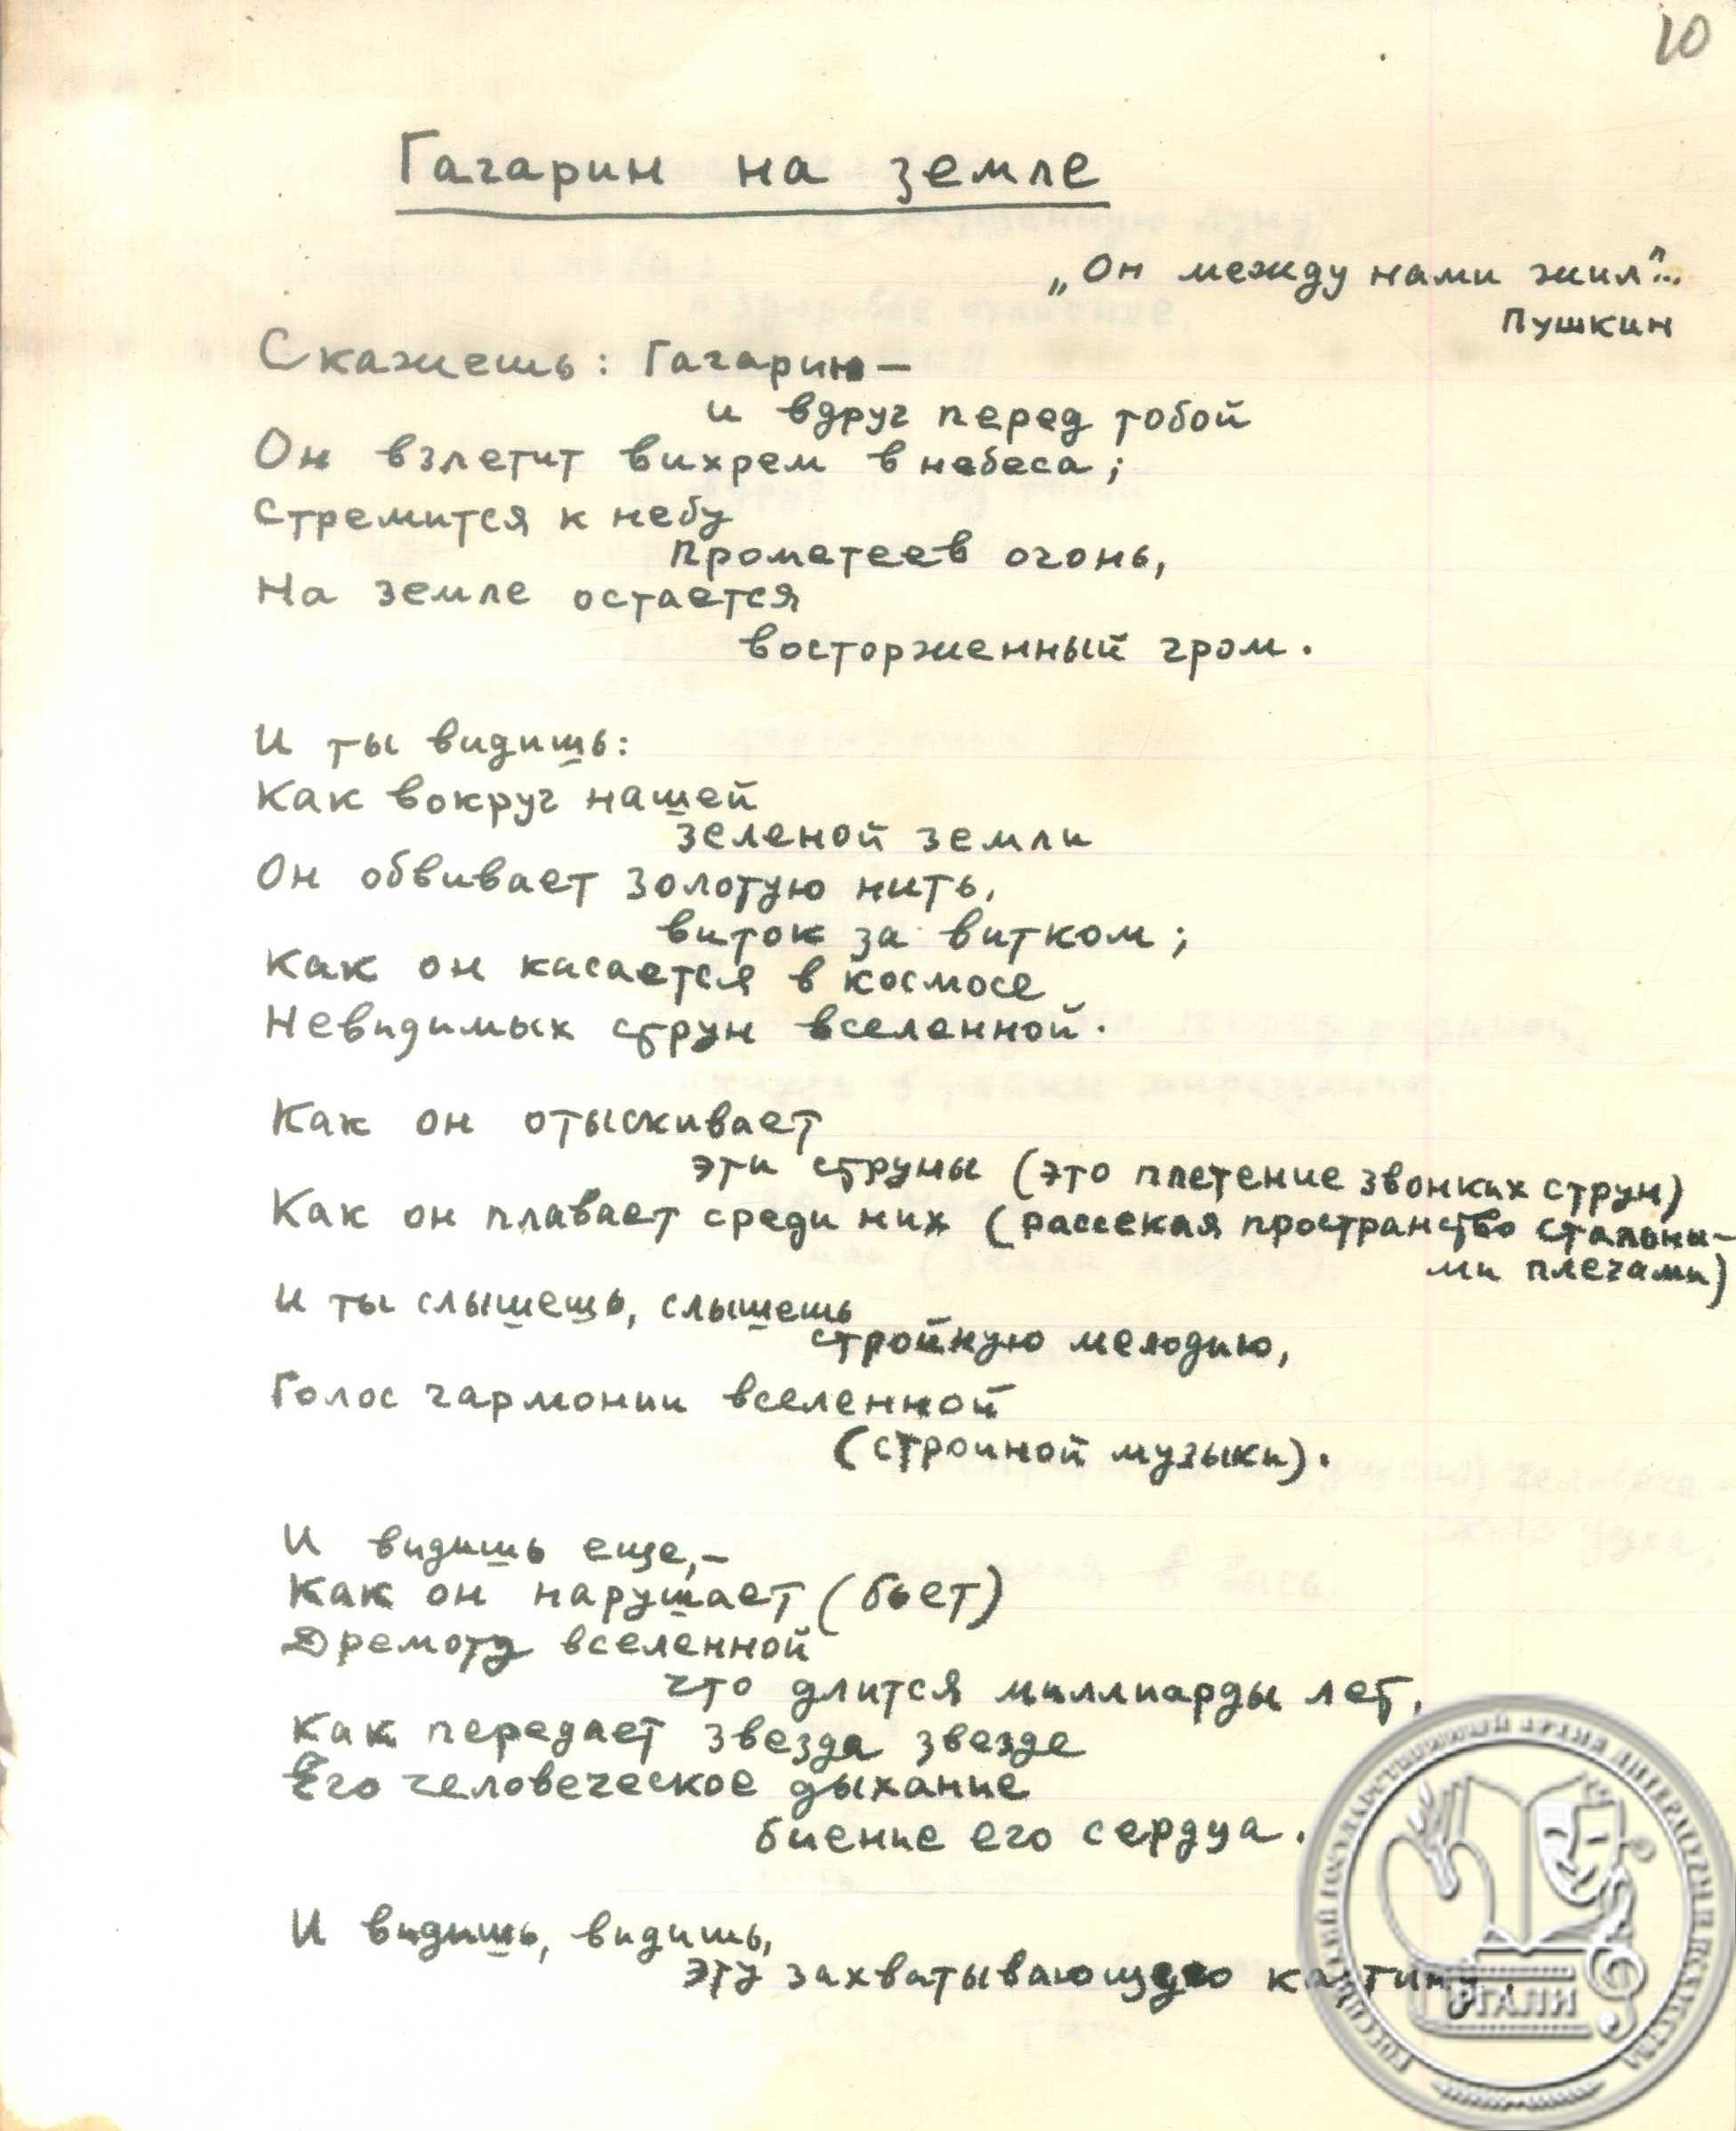 10
Гагарин на земле
„Он между нами жил"...
Пушкин
Скажешь: Гагарин —
и вдруг перед тобой
Он взлетит вихрем в небеса;
Стремится к небу
Прометеев огонь,
На земле остается
восторженный гром.
И ты видишь:
Как вокруг нашей
зеленой земли
Он обвивает золотую нить,
виток за витком;
Как он касается в космосе
Невидимых струн вселенной.
Как он отыскивает
эти струны (это плетение звонких струн)
Как он плавает среди них (рассекая пространство стальны-
ми плечами)
И ты слышешь, слышешь
стройную мелодию,
Голос гармонии вселенной
(строиной музыки).
И видишь еще,—
Как он нарушает (бьет)
Дремоту вселенной
что длится миллиарды лет,
Как передает звезда звезде
Его человеческое дыхание
биение его сердца.
И видишь, видишь,
эту захватывающую картину.
РОССИЙСКИЙ ГОСУДАРСТВЕННЫЙ АРХИВ ЛИТЕРАТУРЫ И ИСКУССТВА
РГАЛИ